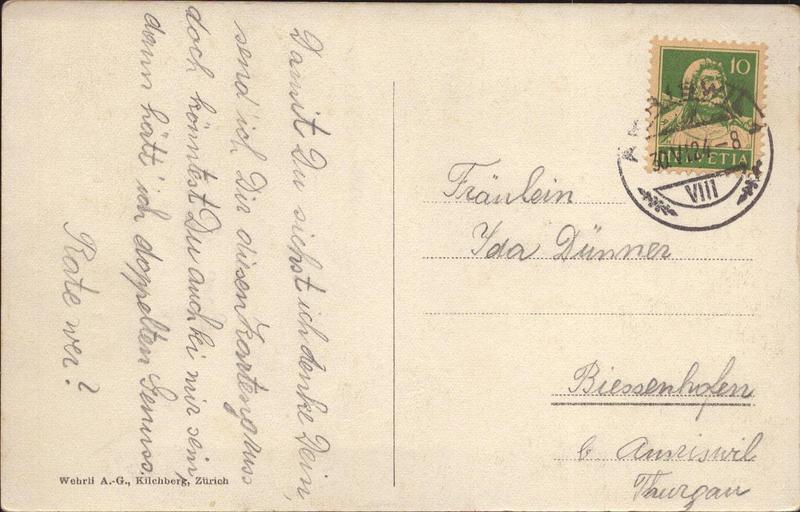 Damit Du siehst ich denke Dein,
send' ich Dir diesen Kartengruss
doch könntest Du auch bei mir sein,
dann hätt' ich doppelten Genuss.
Rate wer?
Wehrli A.-G., Kilchberg, Zürich
10
HELVETIA
30.VI.24-8
VIII
Fräulein
Ida Dünner
Biessenhofen
b. Amriswil
Thurgau